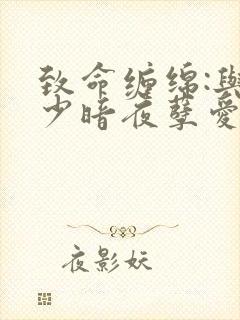 致命缠绵:與
少暗夜孽爱
夜影妖